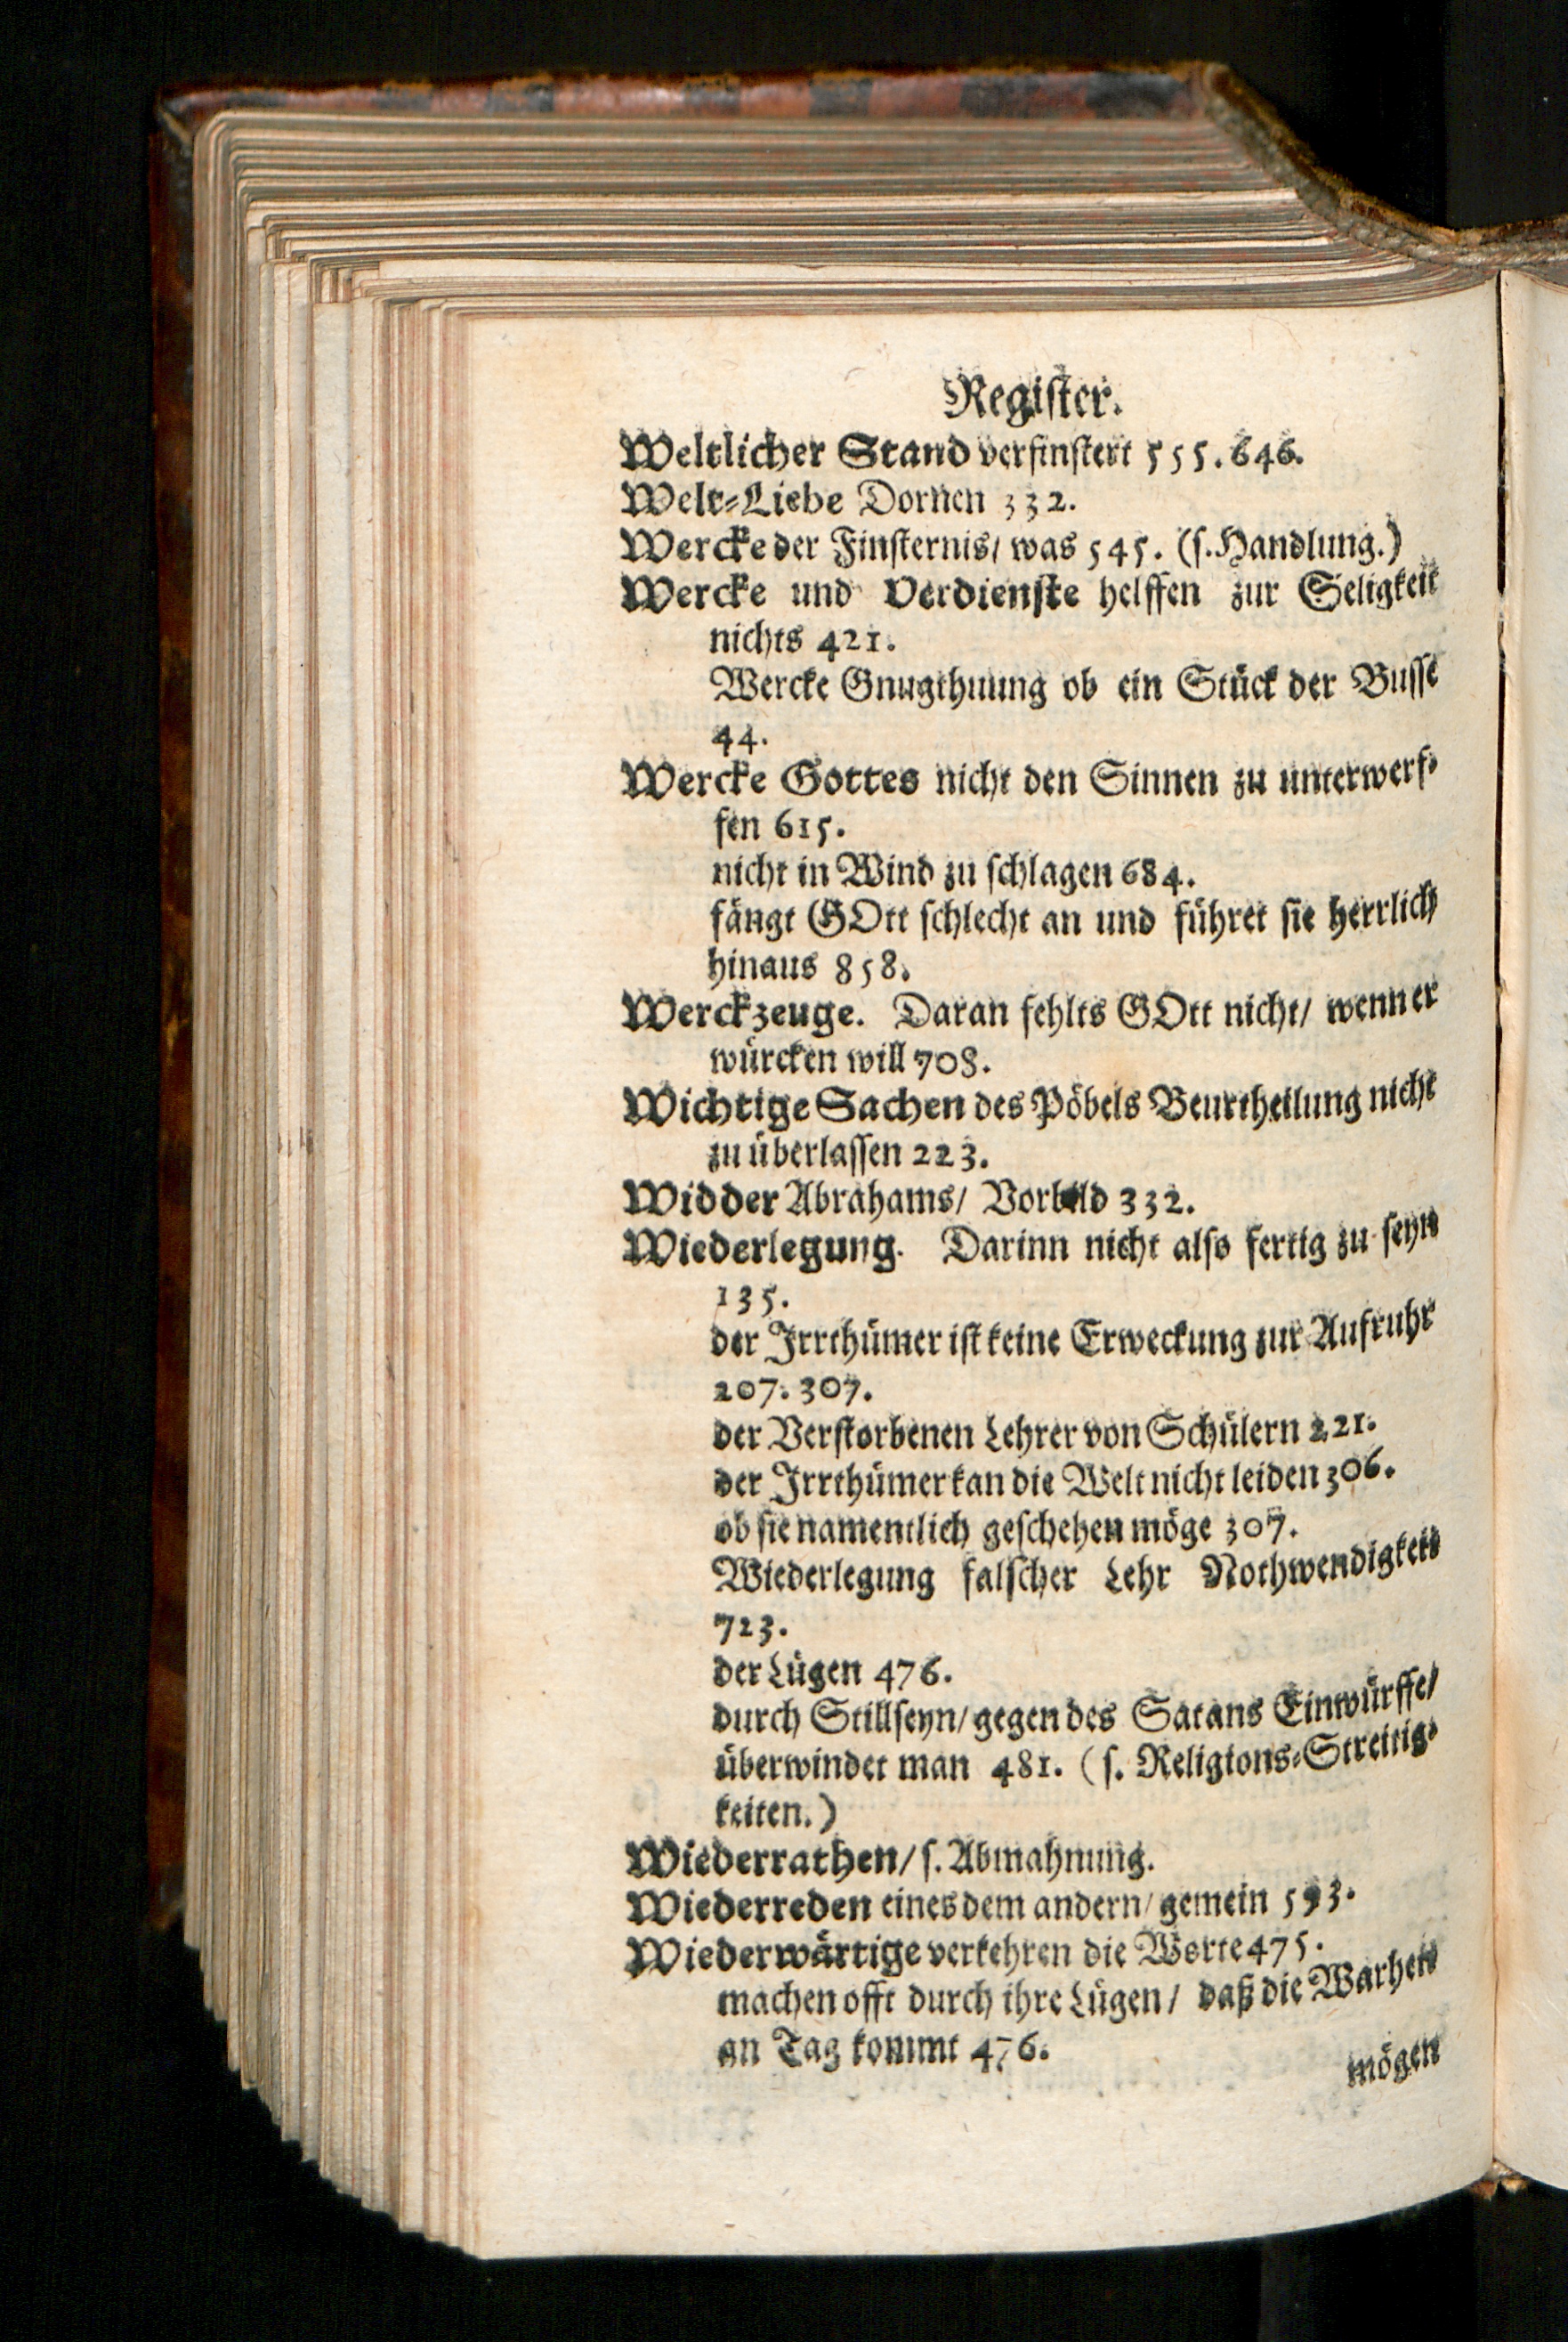 Register.
Weltlicher Stand verfinstert 555. 646.
Welt-Liebe Dornen 332.
Wercke der Finsternis/ was 545. (s. Handlung.)
Wercke und Verdienste helffen zur Seligkeit
nichts 421.
Wercke Gnugthuung ob ein Stück der Busse
44.
Wercke Gottes nicht den Sinnen zu unterwerf-
fen 615.
nicht in Wind zu schlagen 684.
fängt GOtt schlecht an und führet sie herrlich
hinaus 858.
Werckzeuge. Daran fehlts GOtt nicht/ wenn er
würcken will 708.
Wichtige Sachen des Pöbels Beurtheilung nicht
zu überlassen 223.
Widder Abrahams/ Vorbild 332.
Wiederlegung. Darinn nicht also fertig zu seyn
135.
der Irrthümer ist keine Erweckung zur Aufruhr
207. 307.
der Verstorbenen Lehrer von Schülern 221.
der Irrthümer kan die Welt nicht leiden 306.
ob sie namentlich geschehen möge 307.
Wiederlegung falscher Lehr Nothwendigkeit
723.
der Lügen 476.
durch Stillseyn/ gegen des Satans Einwürffe/
überwindet man 481. (s. Religions-Streitig-
keiten.)
Wiederrathen/ s. Abmahnung.
Wiederreden eines dem andern/ gemein 593.
Wiederwärtige verkehren die Worte 475.
machen offt durch ihre Lügen/ daß die Warheit
an Tag kommt 476.
mögen